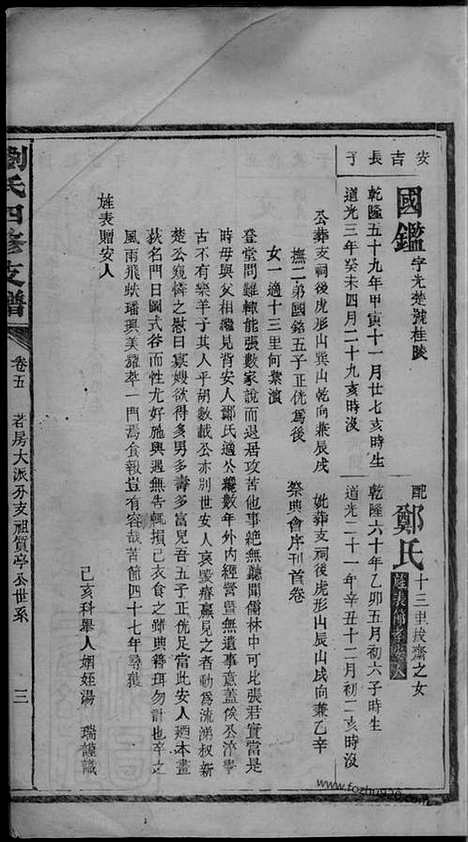 安吉長子
國鑑字光楚號桂陵
乾隆五十九年甲寅十一月廿七亥時生
道光三年癸未四月二十九亥時沒
配鄭氏十三里拔齋之女
旌表節孝安人
乾隆六十年乙卯五月初六子時生
道光二十一年辛丑十二月初二亥時沒
公葬支祠後虎形山巽山乾向兼辰戌
妣葬支祠後虎形山辰山戌向兼乙辛
撫二弟國銘五子正侊為後
祭典會序刊首卷
女一適十三里何業濱
登堂問難輒能張數家說而退居攻苦他事絕無聽聞儒林中可比張君實當是
時毋與父相繼見背安人鄭氏適公纔數年外內經營罾無遺事意蓋俟公濟寧
古不有樂羊子其人乎胡數載公亦別世安人哀毀瘠羸見之者動為流涕叔新
楚公窺憐之慰曰寡嫂欲得多男多壽多富兒吾五子正侊足當此安人本盡
荻名門日圖式谷而性尤好施與遇無告輒損己衣食之釋典簪珥勿計也卒之
風雨飛蛱璠璵美龍萃一門焉食報豈有容哉苦節四十七年尋獲
旌表贈安人
己亥科舉人姻姪湯 瑞謹識
劉氏四修支譜
卷五
若房大派分支祖質亭公世系
三
www.fozhu920.com